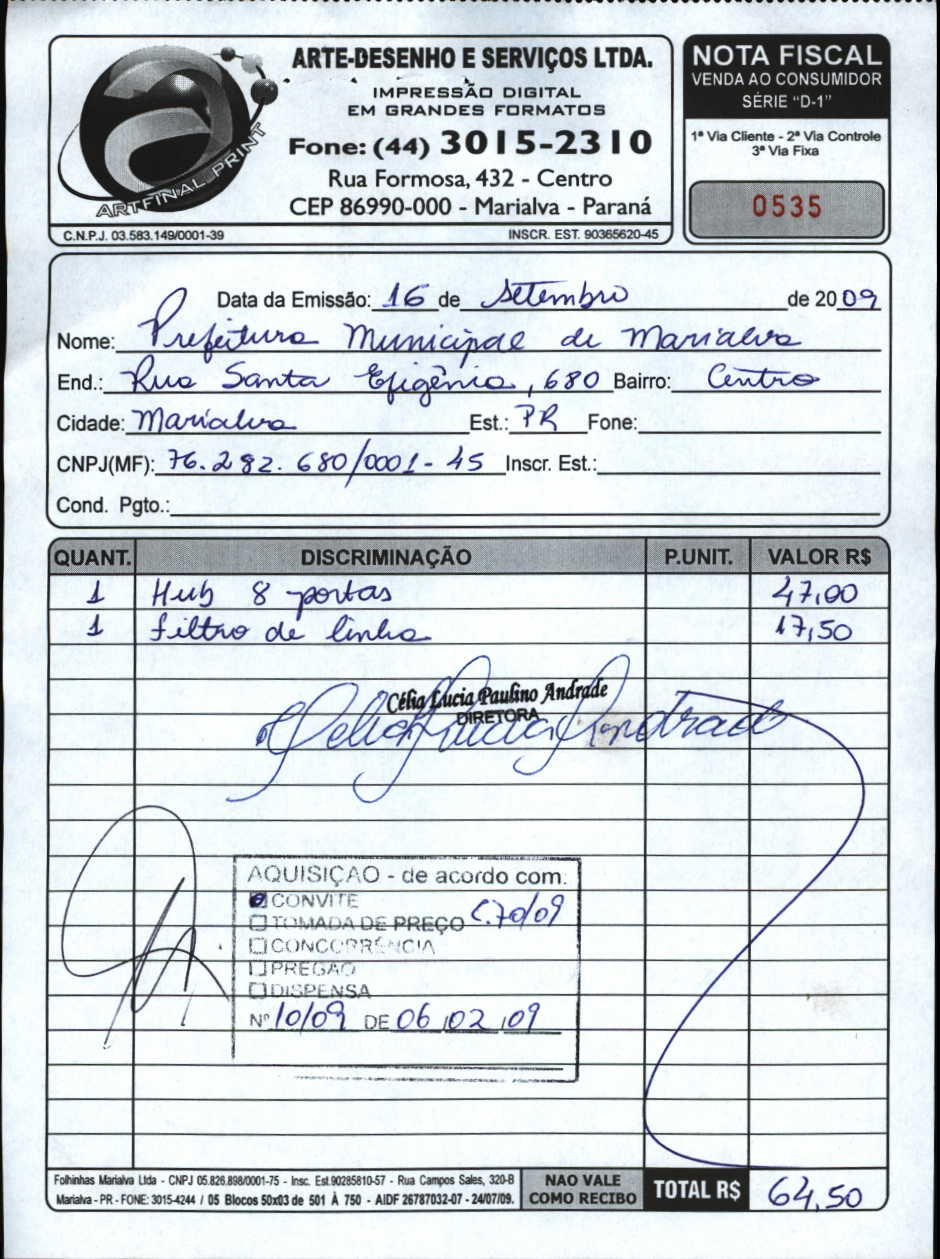 ARTE-DESENHO E SERVIÇOS LTDA.
IMPRESSÃO DIGITAL
EM GRANDES FORMATOS
Fone: (44) 3015-2310
Rua Formosa, 432 - Centro
CEP 86990-000 - Marialva - Paraná
ARTFINAL PRINT
C.N.P.J. 03.583.149/0001-39 INSCR. EST. 90365620-45
NOTA FISCAL
VENDA AO CONSUMIDOR
SÉRIE "D-1"
1ª Via Cliente - 2ª Via Controle
3ª Via Fixa
0535
Data da Emissão: 16 de Setembro de 2009
Nome: Prefeitura Municipal de Marialva
End.: Rua Santa Efigênia, 680 Bairro: Centro
Cidade: Marialva Est.: PR Fone:
CNPJ(MF): 76.282.680/0001-45 Inscr. Est.:
Cond. Pgto.:
QUANT. DISCRIMINAÇÃO P.UNIT. VALOR R$
1 Hub 8 portas 47,00
1 Filtro de linha 17,50
Célia Lúcia Paulino Andrade
DIRETORA
Célia Lucia Andrade
AQUISIÇAO - de acordo com:
CONVITE
TOMADA DE PREÇO C.70/09
CONCORRÊNCIA
PREGÃO
DISPENSA
Nº 10/09 DE 06/02/09
Folhinhas Marialva Ltda - CNPJ 05.826.898/0001-75 - Insc. Est.90285810-57 - Rua Campos Sales, 320-B
Marialva - PR - FONE: 3015-4244 / 05 Blocos 50x03 de 501 À 750 - AIDF 26787032-07 - 24/07/09.
NAO VALE
COMO RECIBO
TOTAL R$ 64,50